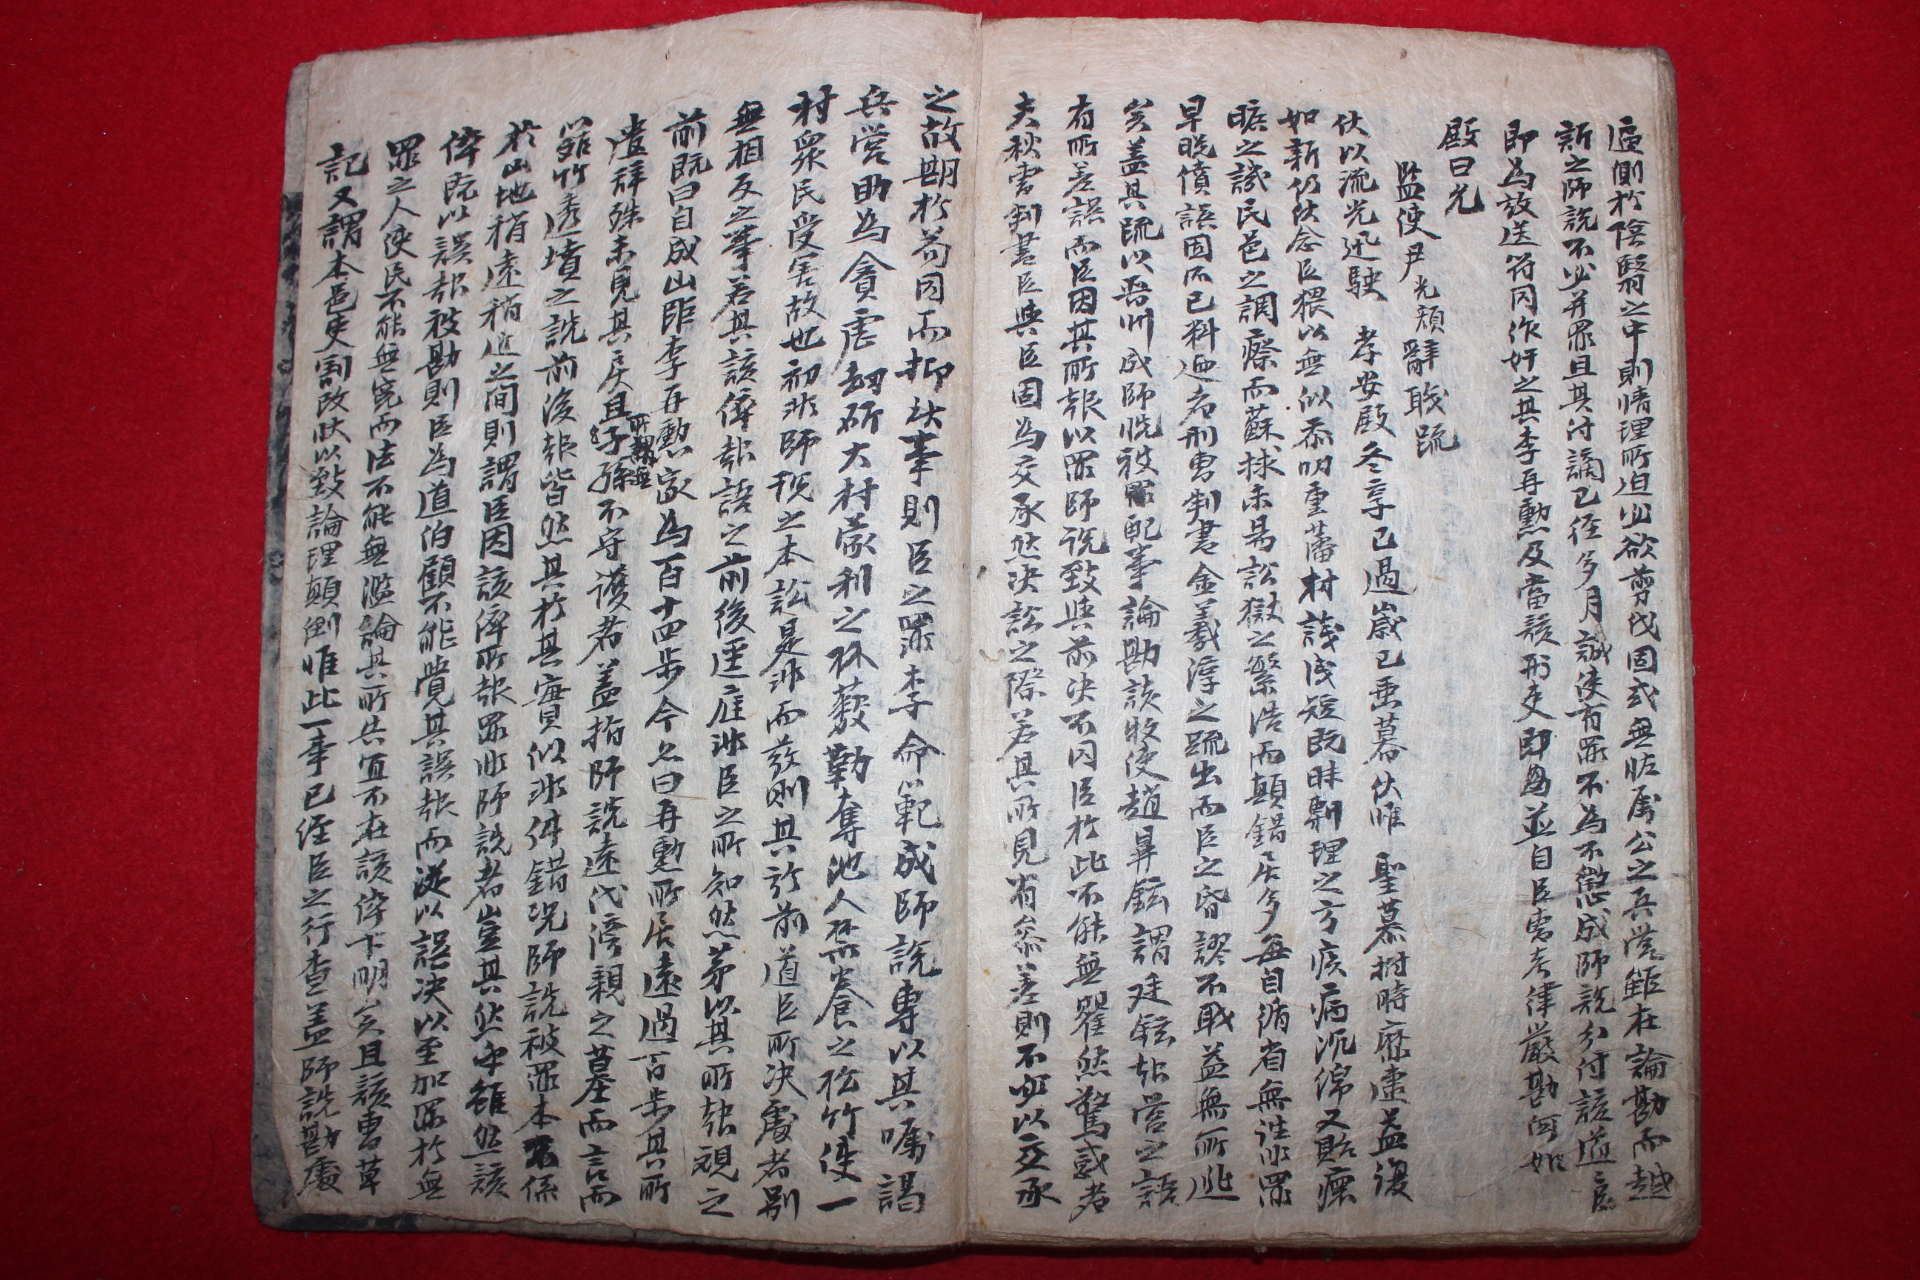 逼側於陰翳之中則情理所迫必欲剪伐固或無怪屬公之兵營雖在論勘而越
訴之師說不必並罪且其付謫已徑多月誠使有罪不為不懲成師說分付該道臣
即為放送符同作奸之其李再勳及當該刑吏即為並自臣曹考律嚴勘何如
啟曰允
監使尹光顏辭職疏
伏以流光迅駛 孝安殿冬享已過歲已垂暮伏惟 聖慕對時靡逮益復
如新仍伏念臣猥以無似忝叨重藩材諓淺短既昧剸理之方疾病沉綿又貽瘝
曠之譏民邑之調瘵而蘇捄未易訟獄之繁浩而顛錯居多每自循省無往非罪
早晚僨誤固所已料迺者刑曹判書金羲淳之疏出而臣之昏謬不職益無所逃
矣蓋其疏以晉州成師說被罪配事論勘該牧使趙鼻鉉謂廷鉉報營之誤
有所差誤而臣因其所報以罪師說致與前決不同臣於此不能無瞿然驚惑者
夫秋官判書臣與臣固為交承然決訟之際若其所見省參差則不必以交承
之故期於苟同而抑其事則臣之罪李命範成師說專以其囑謁
兵營助為貪虐刼斫大村蒙利之林藪勒奪池人禁養之松竹使一
村衆民受害故也初非師說之本訟是非而發則其於前道臣所決處者別
無相反之事若其該倅報誤之前後逕庭非臣之所知然苐以其所報視之
前既曰自成山距李再勳家為百十四步今又曰再勳所居遠過百步其所
遣辭殊未見其戾且子孫不守護者蓋指師說遠代傍親之墓而言而
雖竹逶墳之說前後報皆然其於其實似非件錯況師說被罪本不係
於山地稍遠稍近之間則謂臣因該倅所報罪非師說者豈其然乎雖然該
倅既以誤報被勘則臣為道伯顧不能覺其誤報而遂以誤決以至加罪於無
罪之人使民不能無寃而法不能無濫論其所失宜不在該倅下明矣且該曹草
記又謂本邑吏割改狀以致論理顛倒惟此一事已經臣之行查蓋師說勘處